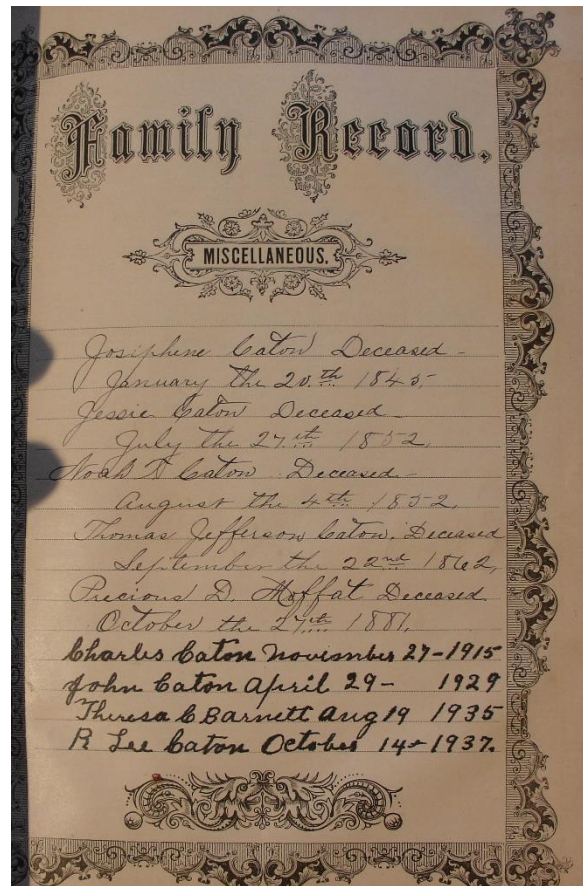 Family Record.
MISCELLANEOUS.
Josiphene Caton Deceased -
January the 20.th 1845.
Jessie Caton Deceased -
July the 27.th 1852.
Noah Caton Deceased -
August the 4th 1852.
Thomas Jefferson Caton. Deceased
September the 22nd 1862,
Precious D. Moffat Deceased
October the 27.th 1881.
Charles Caton November 27-1915
John Caton April 29- 1929
Theresa C Barnett Aug 19 1935
R Lee Caton October 14- 1937.